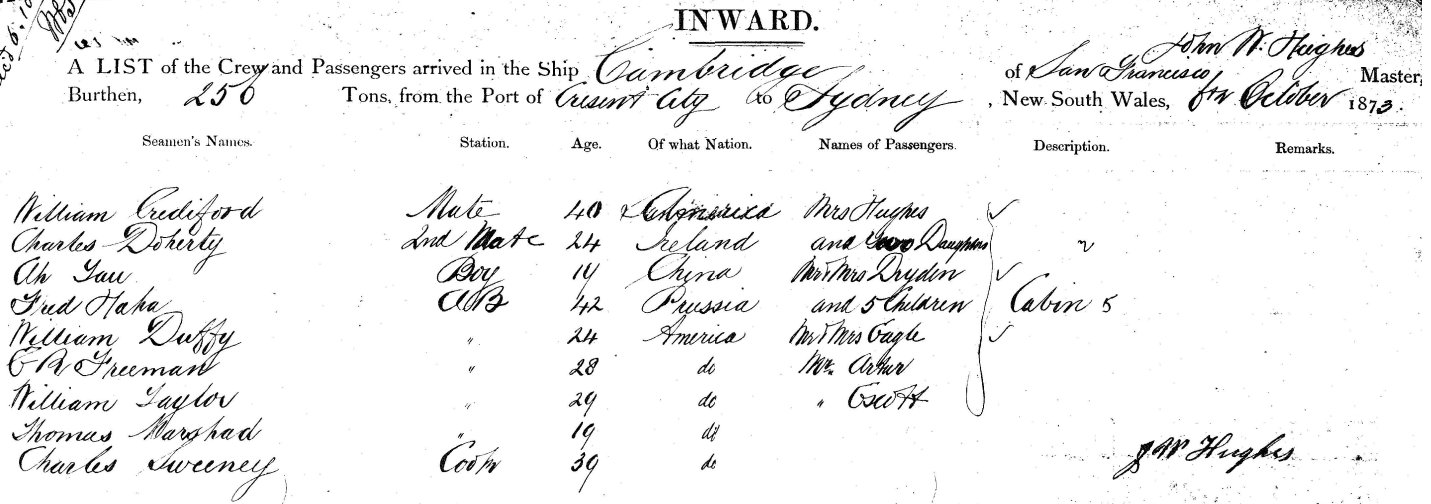 INWARD.
John W. Hughes
A LIST of the Crew and Passengers arrived in the Ship Cambridge of San Francisco Master,
Burthen, 256 Tons, from the Port of Cresent City to Sydney, New South Wales, October 1873.
Seamen's Names. Station. Age. Of what Nation. Names of Passengers. Description. Remarks.
William Crediford Mate 40 America Mrs Hughes
Charles Doherty 2nd Mate 24 Ireland and two Daughters
Ah Boy 19 China Mr & Mrs Dryden
Fred Haha AB 42 Prussia and 5 Children Cabin 5
William Duffy " 24 America Mr & Mrs Eagle
C R Freeman " 28 do Mr. Artur
William Taylor " 29 do " Escott
Thomas Marshad " 19 do
Charles Sweeney Cook 39 do J W Hughes